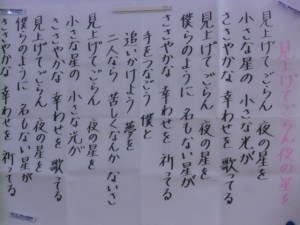 見上げてごらん夜の星を
見上げてごらん 夜の星を
小さな星の 小さな光が
ささやかな 幸わせを 歌ってる
見上げてごらん 夜の星を
僕らのように 名もない星が
ささやかな 幸わせを 祈ってる
手をつなごう 僕と
追いかけよう 夢を
二人なら 苦しくなんか ないさ
見上げてごらん 夜の星を
小さな星の 小さな光が
ささやかな 幸わせを 歌ってる
見上げてごらん 夜の星を
僕らのように 名もない星が
ささやかな 幸わせを 祈ってる